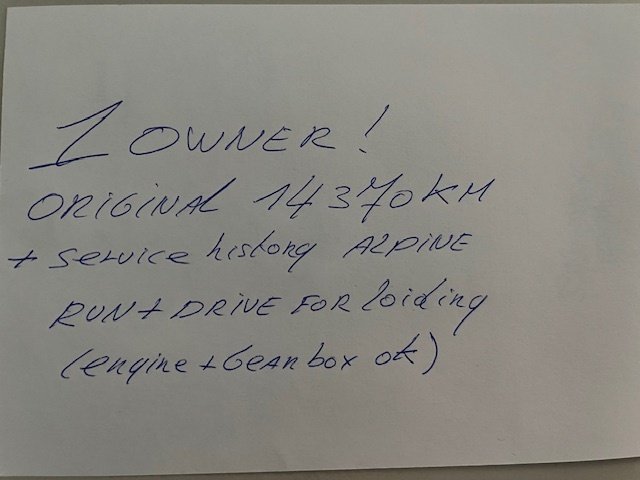 1 OWNER!
ORIGINAL 14370KM
+ service history ALPINE
RUN + DRIVE FOR loiding
(engine + Gearbox ok)